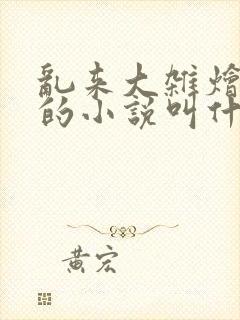 亂来大雑燴
的小説叫什
黄宏